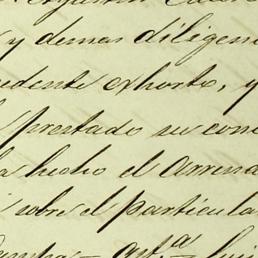 y demas diligen
udente exhorto, y
prestado su con
a hecho el arren
sobre el particula